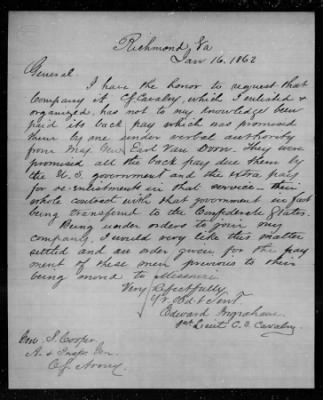 Richmond, Va
Jan 16. 1862
General.
I have the honor to request that
Company A. C.S. Cavalry, which I enlisted &
organized, has not to my knowledge been
paid its back pay which was promised
them by me under verbal authority
from Maj. Gen. Earl Van Dorn. They were
promised all the back pay due them by
the U.S. government and the extra pay
for re-enlistments in that service — their
whole contract with that government in fact
being transferred to the Confederate States.
Being under orders to join my
company, I would very like this matter
settled and an order given for the pay
ment of these men previous to their
being moved to Missouri.
Very Respectfully
Yr. Obdt Servt.
Edward Ingraham
1st Lieut. C.S. Cavalry.
Gen. S. Cooper.
A. & Insp. Gen.
C.S. Army.